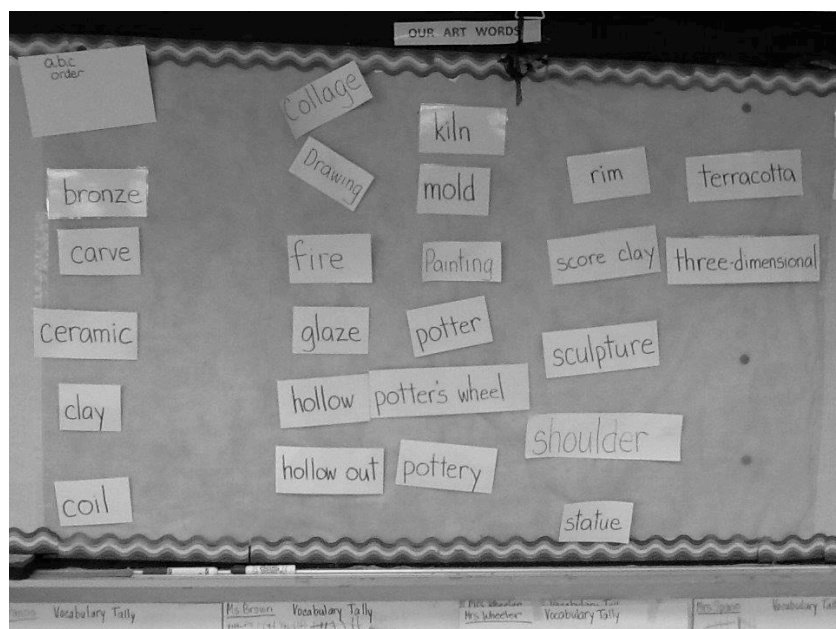 OUR ART WORDS
abc
order
bronze
carve
ceramic
clay
coil
Collage
Drawing
fire
glaze
hollow
hollow out
kiln
mold
Painting
potter
potter's wheel
pottery
rim
score clay
sculpture
shoulder
statue
terracotta
three-dimensional
Vocabulary Tally
Ms. Brown Vocabulary Tally
Mrs. Wheeler Vocabulary Tally
Vocabulary Tall